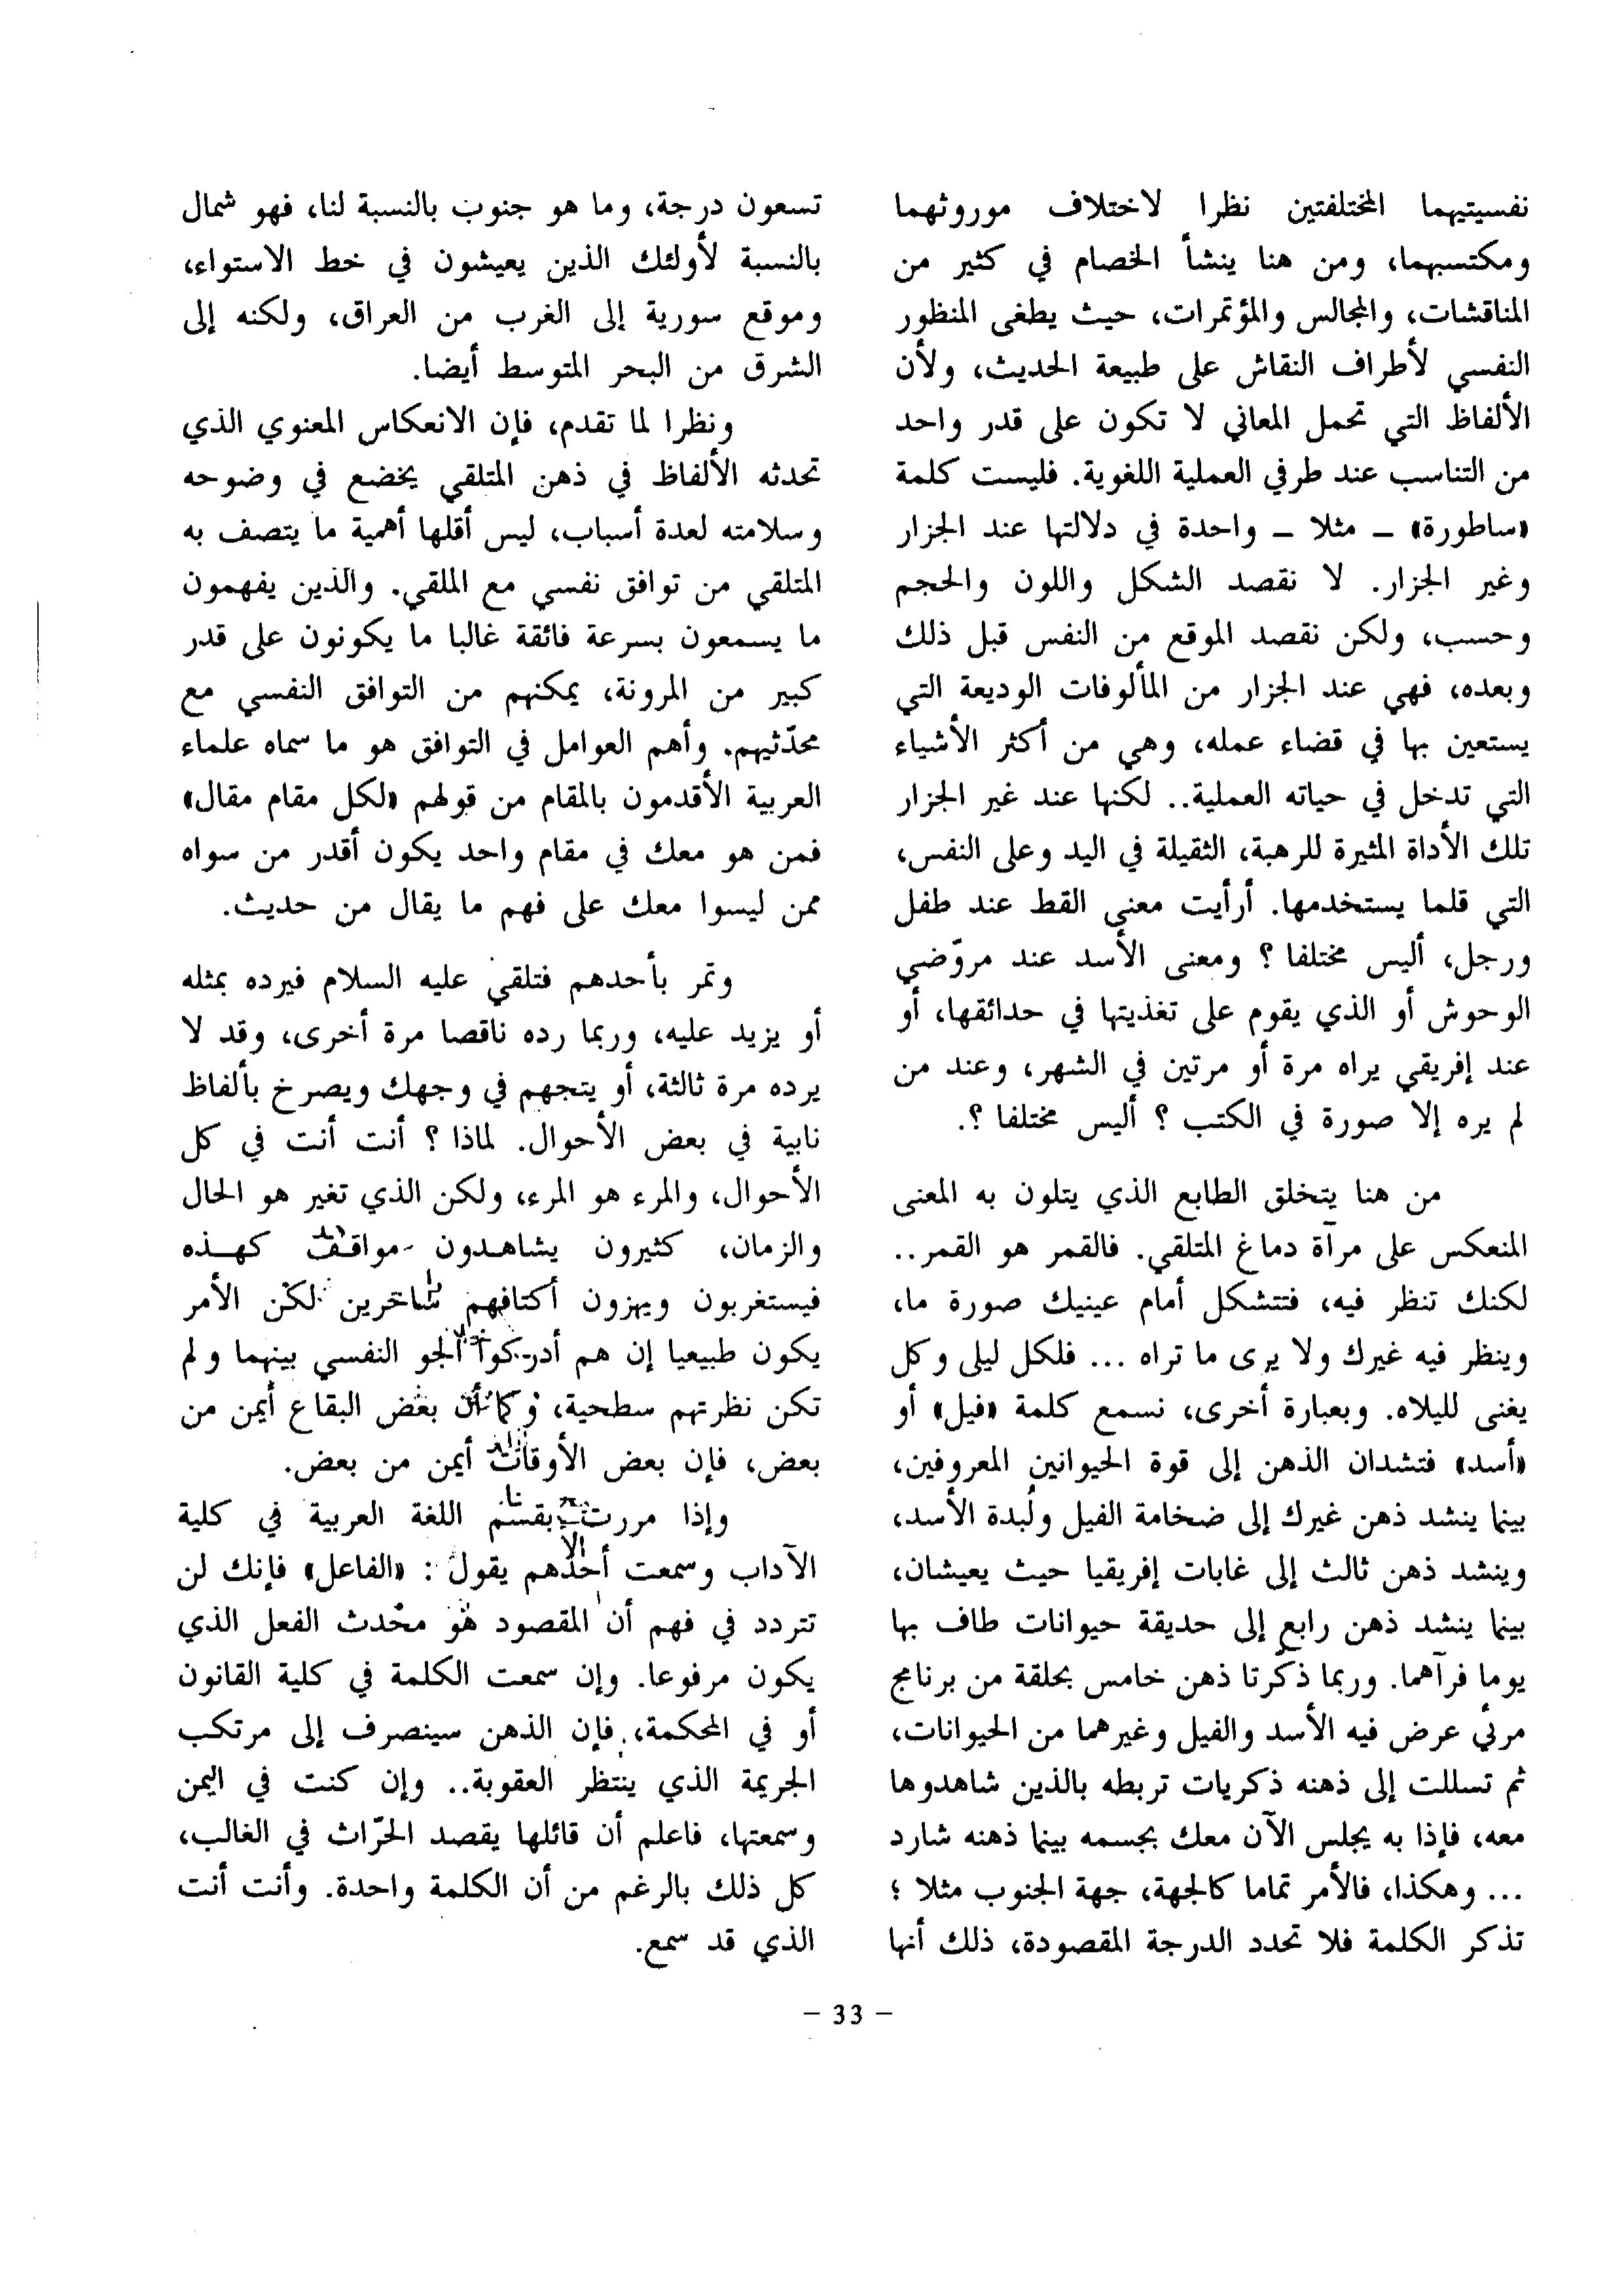 نفسيتيهما المختلفتين نظرا لاختلاف موروثهما
ومكتسبهما، ومن هنا ينشأ الخصام في كثير من
المناقشات، والمجالس والمؤتمرات، حيث يطغى المنظور
النفسي لأطراف النقاش على طبيعة الحديث، ولأن
الألفاظ التي تحمل المعاني لا تكون على قدر واحد
من التناسب عند طرفي العملية اللغوية. فليست كلمة
«ساطورة» – مثلا – واحدة في دلالتها عند الجزار
وغير الجزار. لا نقصد الشكل واللون والحجم
وحسب، ولكن نقصد الموقع من النفس قبل ذلك
وبعده، فهي عند الجزار من المألوفات الوديعة التي
يستعين بها في قضاء عمله، وهي من أكثر الأشياء
التي تدخل في حياته العملية.. لكنها عند غير الجزار
تلك الأداة المثيرة للرهبة، الثقيلة في اليد وعلى النفس،
التي قلما يستخدمها. أرأيت معنى القط عند طفل
ورجل، أليس مختلفا ؟ ومعنى الأسد عند مروّضي
الوحوش أو الذي يقوم على تغذيتها في حدائقها، أو
عند إفريقي يراه مرة أو مرتين في الشهر، وعند من
لم يره إلا صورة في الكتب ؟ أليس مختلفا ؟.
من هنا يتخلق الطابع الذي يتلون به المعنى
المنعكس على مرآة دماغ المتلقي. فالقمر هو القمر..
لكنك تنظر فيه، فتتشكل أمام عينيك صورة ما،
وينظر فيه غيرك ولا يرى ما تراه ... فلكل ليلى وكل
يغنى لليلاه. وبعبارة أخرى، نسمع كلمة «فيل» أو
«أسد» فتشدان الذهن إلى قوة الحيوانين المعروفين،
بينما ينشد ذهن غيرك إلى ضخامة الفيل ولُبدة الأسد،
وينشد ذهن ثالث إلى غابات إفريقيا حيث يعيشان،
بينما ينشد ذهن رابع إلى حديقة حيوانات طاف بها
يوما فرآهما. وربما ذكّرتا ذهن خامس بحلقة من برنامج
مرئي عرض فيه الأسد والفيل وغيرهما من الحيوانات،
ثم تسللت إلى ذهنه ذكريات تربطه بالذين شاهدوها
معه، فإذا به يجلس الآن معك بجسمه بينما ذهنه شارد
... وهكذا، فالأمر تماما كالجهة، جهة الجنوب مثلا ؛
تذكر الكلمة فلا تحدد الدرجة المقصودة، ذلك أنها
تسعون درجة، وما هو جنوب بالنسبة لنا، فهو شمال
بالنسبة لأولئك الذين يعيشون في خط الاستواء،
وموقع سورية إلى الغرب من العراق، ولكنه إلى
الشرق من البحر المتوسط أيضا.
ونظرا لما تقدم، فإن الانعكاس المعنوي الذي
تحدثه الألفاظ في ذهن المتلقي يخضع في وضوحه
وسلامته لعدة أسباب، ليس أقلها أهمية ما يتصف به
المتلقي من توافق نفسي مع الملقي. والذين يفهمون
ما يسمعون بسرعة فائقة غالبا ما يكونون على قدر
كبير من المرونة، يمكنهم من التوافق النفسي مع
محدّثيهم. وأهم العوامل في التوافق هو ما سماه علماء
العربية الأقدمون بالمقام من قولهم «لكل مقام مقال»
فمن هو معك في مقام واحد يكون أقدر من سواه
ممن ليسوا معك على فهم ما يقال من حديث.
وتمر بأحدهم فتلقي عليه السلام فيرده بمثله
أو يزيد عليه، وربما رده ناقصا مرة أخرى، وقد لا
يرده مرة ثالثة، أو يتجهم في وجهك ويصرخ بألفاظ
نابية في بعض الأحوال. لماذا ؟ أنت أنت في كل
الأحوال، والمرء هو المرء، ولكن الذي تغير هو الحال
والزمان، كثيرون يشاهدون مواقف كهذه
فيستغربون ويهزون أكتافهم ساخرين لكن الأمر
يكون طبيعيا إن هم أدركوا الجو النفسي بينهما ولم
تكن نظرتهم سطحية، وكما أن بعض البقاع أيمن من
بعض، فإن بعض الأوقات أيمن من بعض.
وإذا مررت بقسم اللغة العربية في كلية
الآداب وسمعت أحدهم يقول : «الفاعل» فإنك لن
تتردد في فهم أن المقصود هو محْدث الفعل الذي
يكون مرفوعا. وإن سمعت الكلمة في كلية القانون
أو في المحكمة، فإن الذهن سينصرف إلى مرتكب
الجريمة الذي ينتظر العقوبة.. وإن كنت في اليمن
وسمعتها، فاعلم أن قائلها يقصد الحرّاث في الغالب،
كل ذلك بالرغم من أن الكلمة واحدة. وأنت أنت
الذي قد سمع.
– 33 –